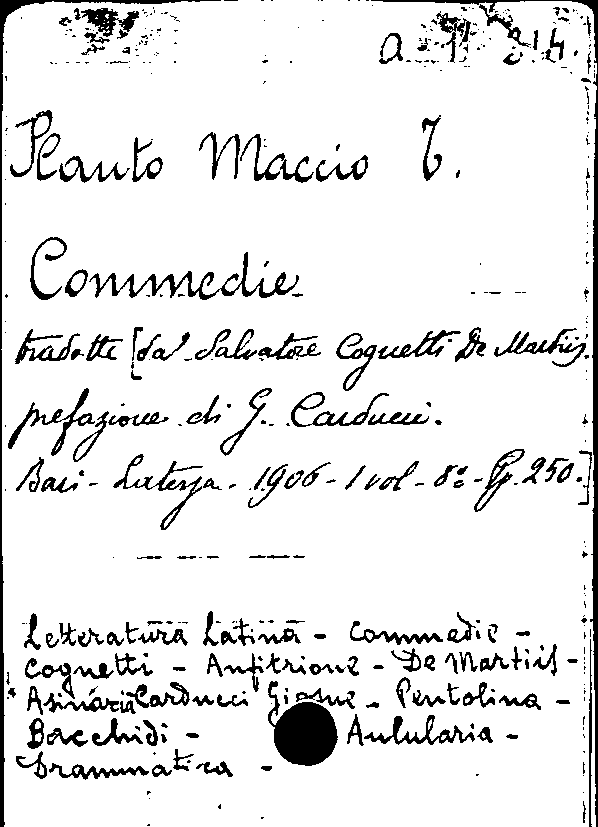 Plauto Maccio T.
Commedie
tradotte [da Salvatore Cognetti De Martiis.
prefazione di G. Carducci.
Bari - Laterza - 1906 - 1 vol - 8º - Pp. 250.]
Letteratura Latina - Commedie -
Cognetti - Anfitrione - De Martiis -
Asinaria Carducci Giosue - Pentolina -
Bacchidi - Aulularia -
Drammatica -